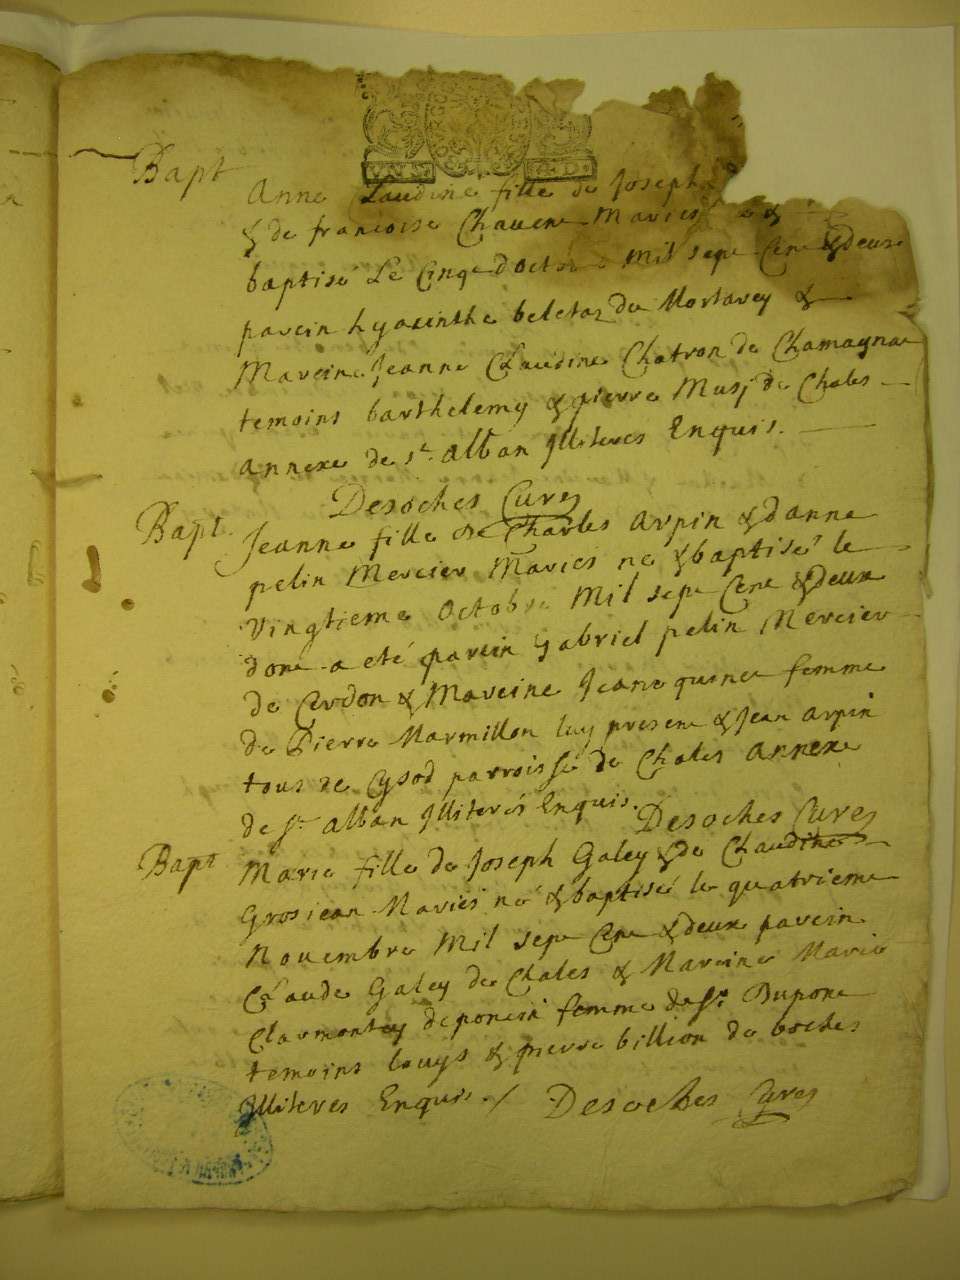 Bapt
Anne Claudine fille de Joseph
& de francoise Chavene Maries
baptisé Le Cinqe doct Mil sept Cent & deux
parein hyacinthe beletaz de Mortarey &
Mareine Jeanne Claudine Chatron de Chamagnac
temoins barthelemy & pierre Musj de Chales
annexe de st. alban Illiteres Enquis.
Desoches Cures
Bapt. Jeanne fille de Charles arpin & danne
pelin Mercier Maries né & baptisé le
vingtieme octobre Mil sept Cent & deux
dont a eté parein gabriel pelin Mercier
de Cerdon & Mareine Jeane quinet femme
de Pierre Marmillon luy present & Jean arpin
tous de Cysod parroisse de Chales annexe
de st. alban Illiterés Enquis. Desoches Cures
Bapt Marie fille de Joseph Galey & de Claudine
Grosjean Maries né & baptisé le quatrieme
Novembre Mil sept Cent & deux parein
Claude Galey de Chales & Mareine Marie
Clarmontey deponcin femme de sr. Dupont
temoins louys & pierre billion de boches
Illiteres Enquis. / Desoches Cures